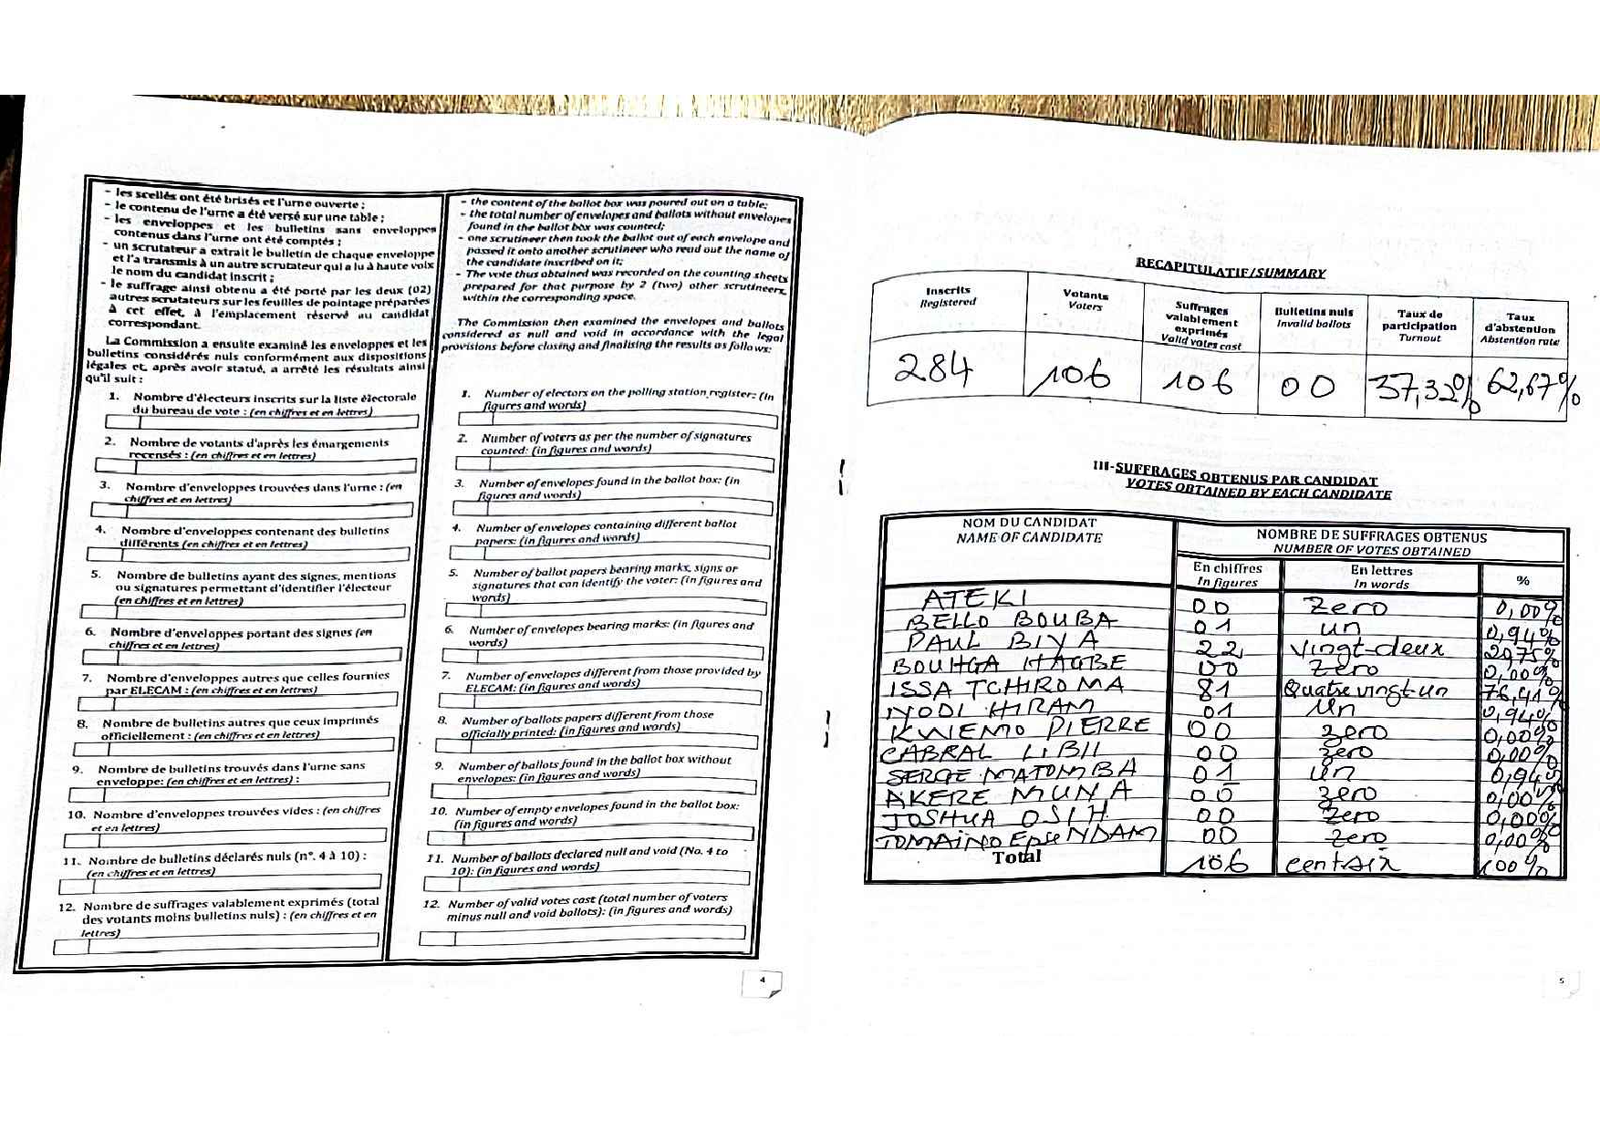 - les scellés ont été brisés et l'urne ouverte ;
- le contenu de l'urne a été versé sur une table ;
- les enveloppes et les bulletins sans enveloppes
contenus dans l'urne ont été comptés ;
- un scrutateur a extrait le bulletin de chaque enveloppe
et l'a transmis à un autre scrutateur qui a lu à haute voix
le nom du candidat inscrit ;
- le suffrage ainsi obtenu a été porté par les deux (02)
autres scrutateurs sur les feuilles de pointage préparées
à cet effet, à l'emplacement réservé au candidat
correspondant.
La Commission a ensuite examiné les enveloppes et les
bulletins considérés nuls conformément aux dispositions
légales et, après avoir statué, a arrêté les résultats ainsi
qu'il suit :
1. Nombre d'électeurs inscrits sur la liste électorale
du bureau de vote : (en chiffres et en lettres)
2. Nombre de votants d'après les émargements
recensés : (en chiffres et en lettres)
3. Nombre d'enveloppes trouvées dans l'urne : (en
chiffres et en lettres)
4. Nombre d'enveloppes contenant des bulletins
différents (en chiffres et en lettres)
5. Nombre de bulletins ayant des signes, mentions
ou signatures permettant d'identifier l'électeur
(en chiffres et en lettres)
6. Nombre d'enveloppes portant des signes (en
chiffres et en lettres)
7. Nombre d'enveloppes autres que celles fournies
par ELECAM : (en chiffres et en lettres)
8. Nombre de bulletins autres que ceux imprimés
officiellement : (en chiffres et en lettres)
9. Nombre de bulletins trouvés dans l'urne sans
enveloppe: (en chiffres et en lettres) :
10. Nombre d'enveloppes trouvées vides : (en chiffres
et en lettres)
11. Nombre de bulletins déclarés nuls (n°. 4 à 10) :
(en chiffres et en lettres)
12. Nombre de suffrages valablement exprimés (total
des votants moins bulletins nuls) : (en chiffres et en
lettres)
- the content of the ballot box was poured out on a table;
- the total number of envelopes and ballots without envelopes
found in the ballot box was counted;
- one scrutineer then took the ballot out of each envelope and
passed it onto another scrutineer who read out the name of
the candidate inscribed on it;
- The vote thus obtained was recorded on the counting sheets
prepared for that purpose by 2 (two) other scrutineers,
within the corresponding space.
The Commission then examined the envelopes and ballots
considered as null and void in accordance with the legal
provisions before closing and finalising the results as follows:
1. Number of electors on the polling station register: (in
figures and words)
2. Number of voters as per the number of signatures
counted: (in figures and words)
3. Number of envelopes found in the ballot box: (in
figures and words)
4. Number of envelopes containing different ballot
papers: (in figures and words)
5. Number of ballot papers bearing marks, signs or
signatures that can identify the voter: (in figures and
words)
6. Number of envelopes bearing marks: (in figures and
words)
7. Number of envelopes different from those provided by
ELECAM: (in figures and words)
8. Number of ballots papers different from those
officially printed: (in figures and words)
9. Number of ballots found in the ballot box without
envelopes: (in figures and words)
10. Number of empty envelopes found in the ballot box:
(in figures and words)
11. Number of ballots declared null and void (No. 4 to
10): (in figures and words)
12. Number of valid votes cast (total number of voters
minus null and void ballots): (in figures and words)
4
RECAPITULATIF/SUMMARY
Inscrits Registered Votants Voters Suffrages valablement exprimés Valid votes cast Bulletins nuls Invalid ballots Taux de participation Turnout Taux d'abstention Abstention rate
284 106 106 00 37,32% 62,67%
III-SUFFRAGES OBTENUS PAR CANDIDAT
VOTES OBTAINED BY EACH CANDIDATE
NOM DU CANDIDAT NOMBRE DE SUFFRAGES OBTENUS
NAME OF CANDIDATE NUMBER OF VOTES OBTAINED
En chiffres En lettres
In figures In words %
ATEKI 00 Zero 0,00%
BELLO BOUBA 01 un 0,94%
PAUL BIYA 22 Vingt-deux 20,75%
BOUHGA HAGBE 00 Zero 0,00%
ISSA TCHIROMA 81 Quatre vingt un 76,41%
IYODI HIRAM 01 Un 0,94%
KWEMO PIERRE 00 zero 0,00%
CABRAL LIBII 00 zero 0,00%
SERGE MATOMBA 01 un 0,94%
AKERE MUNA 00 zero 0,00%
JOSHUA OSIH 00 zero 0,00%
TOMAINO NDAM 00 zero 0,00%
Total 106 cent six 100%
5